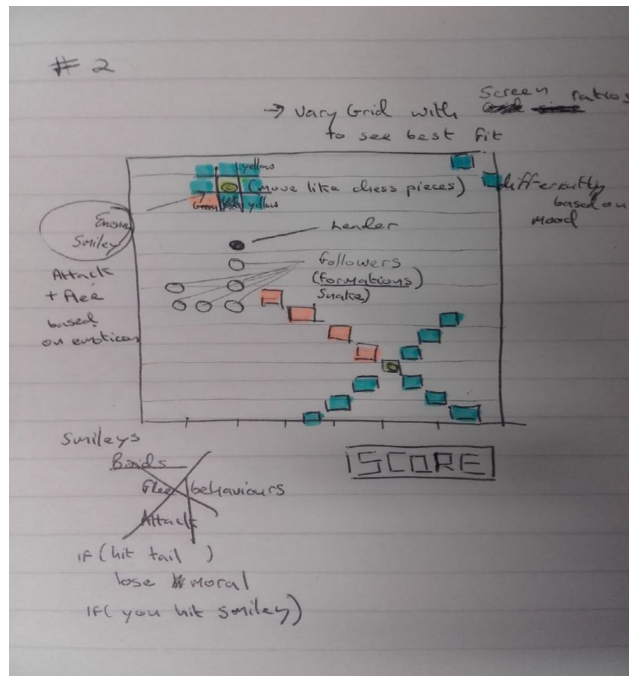 # 2
→ Vary Grid with Screen ratios
to see best fit
yellow
(Move like chess pieces) differently
based on
Mood
yellow
Enemy
Smiley
Leader
Followers
(formations)
Snake)
Attack
+ flee
based
on emoticon
SCORE
Smileys
Boids
Flee behaviours
Attack
IF (hit tail )
lose Moral
IF( you hit smiley)